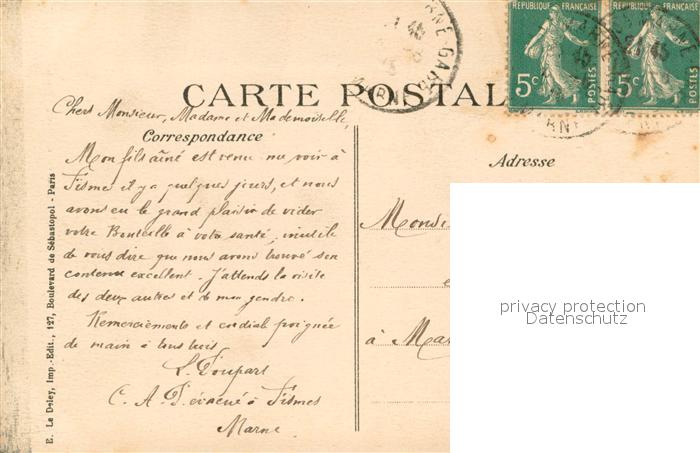 RÉPUBLIQUE FRANÇAISE RÉPUBLIQUE FRANÇAISE
5c POSTES 5c POSTES
CARTE POSTAL
Chers Monsieur, Madame et Mademoiselle,
Correspondance
Adresse
Mon fils aîné est venu me voir à
Fismes il y a quelques jours, et nous
avons eu le grand plaisir de vider
votre Bouteille à votre santé, inutile
de vous dire que nous avons trouvé son
contenu excellent. J'attends la visite
des deux autres et de mon gendre.
Remerciements et cordiale poignée
de main à tous trois
L. Doupart
C. A. D. évacué à Fismes
Marne
Monsi
e
à Mar
privacy protection
Datenschutz
E. Le Deley, Imp.-Edit., 127, Boulevard de Sébastopol - Paris